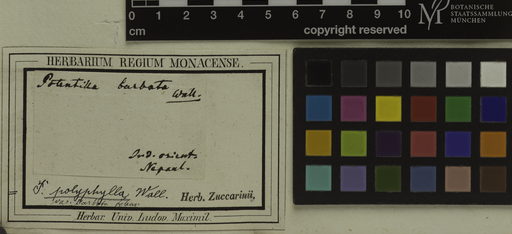 0 1 2 3 4 5 6 7 8 9 10
cm
copyright reserved
BOTANISCHE
STAATSSAMMLUNG
MÜNCHEN
HERBARIUM REGIUM MONACENSE.
Potentilla barbata
Wall.
Ind. orient.
Napaul.
P. polyphylla Wall.
var. barbata
Herb. Zuccarinii,
Herbar. Univ. Ludov. Maximil.